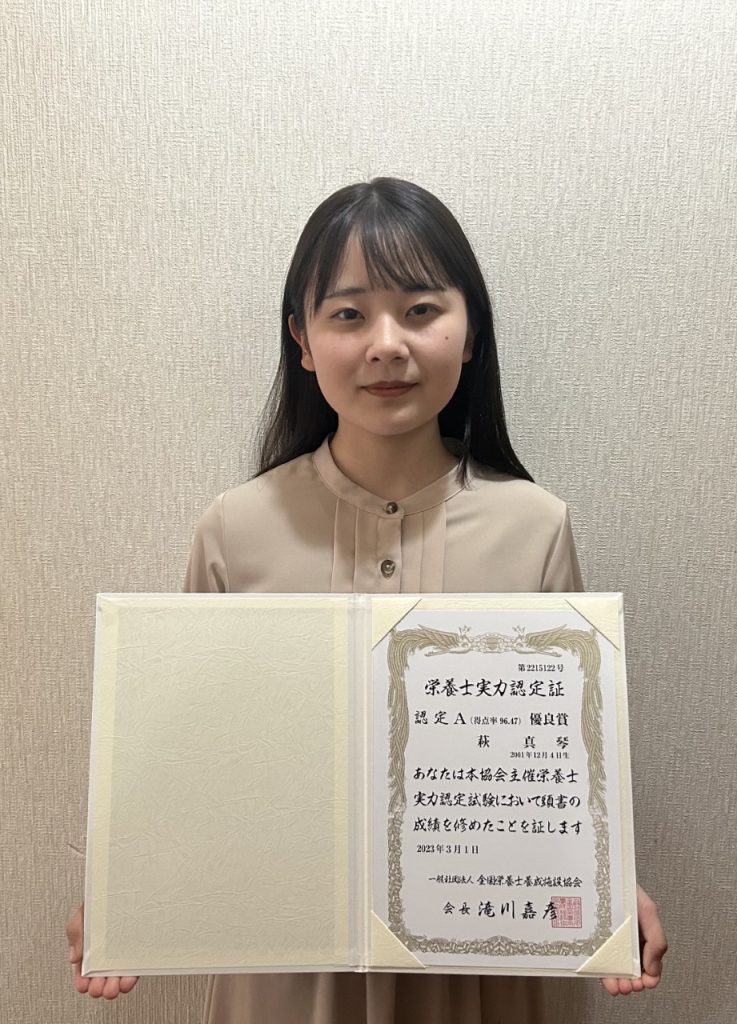 第2215122号
栄養士実力認定証
認定A(得点率96.47)優良賞
萩 真 琴
2001年12月4日生
あなたは本協会主催栄養士
実力認定試験において頭書の
成績を修めたことを証します
2023年3月1日
一般社団法人 全国栄養士養成施設協会
会長 滝川嘉彦